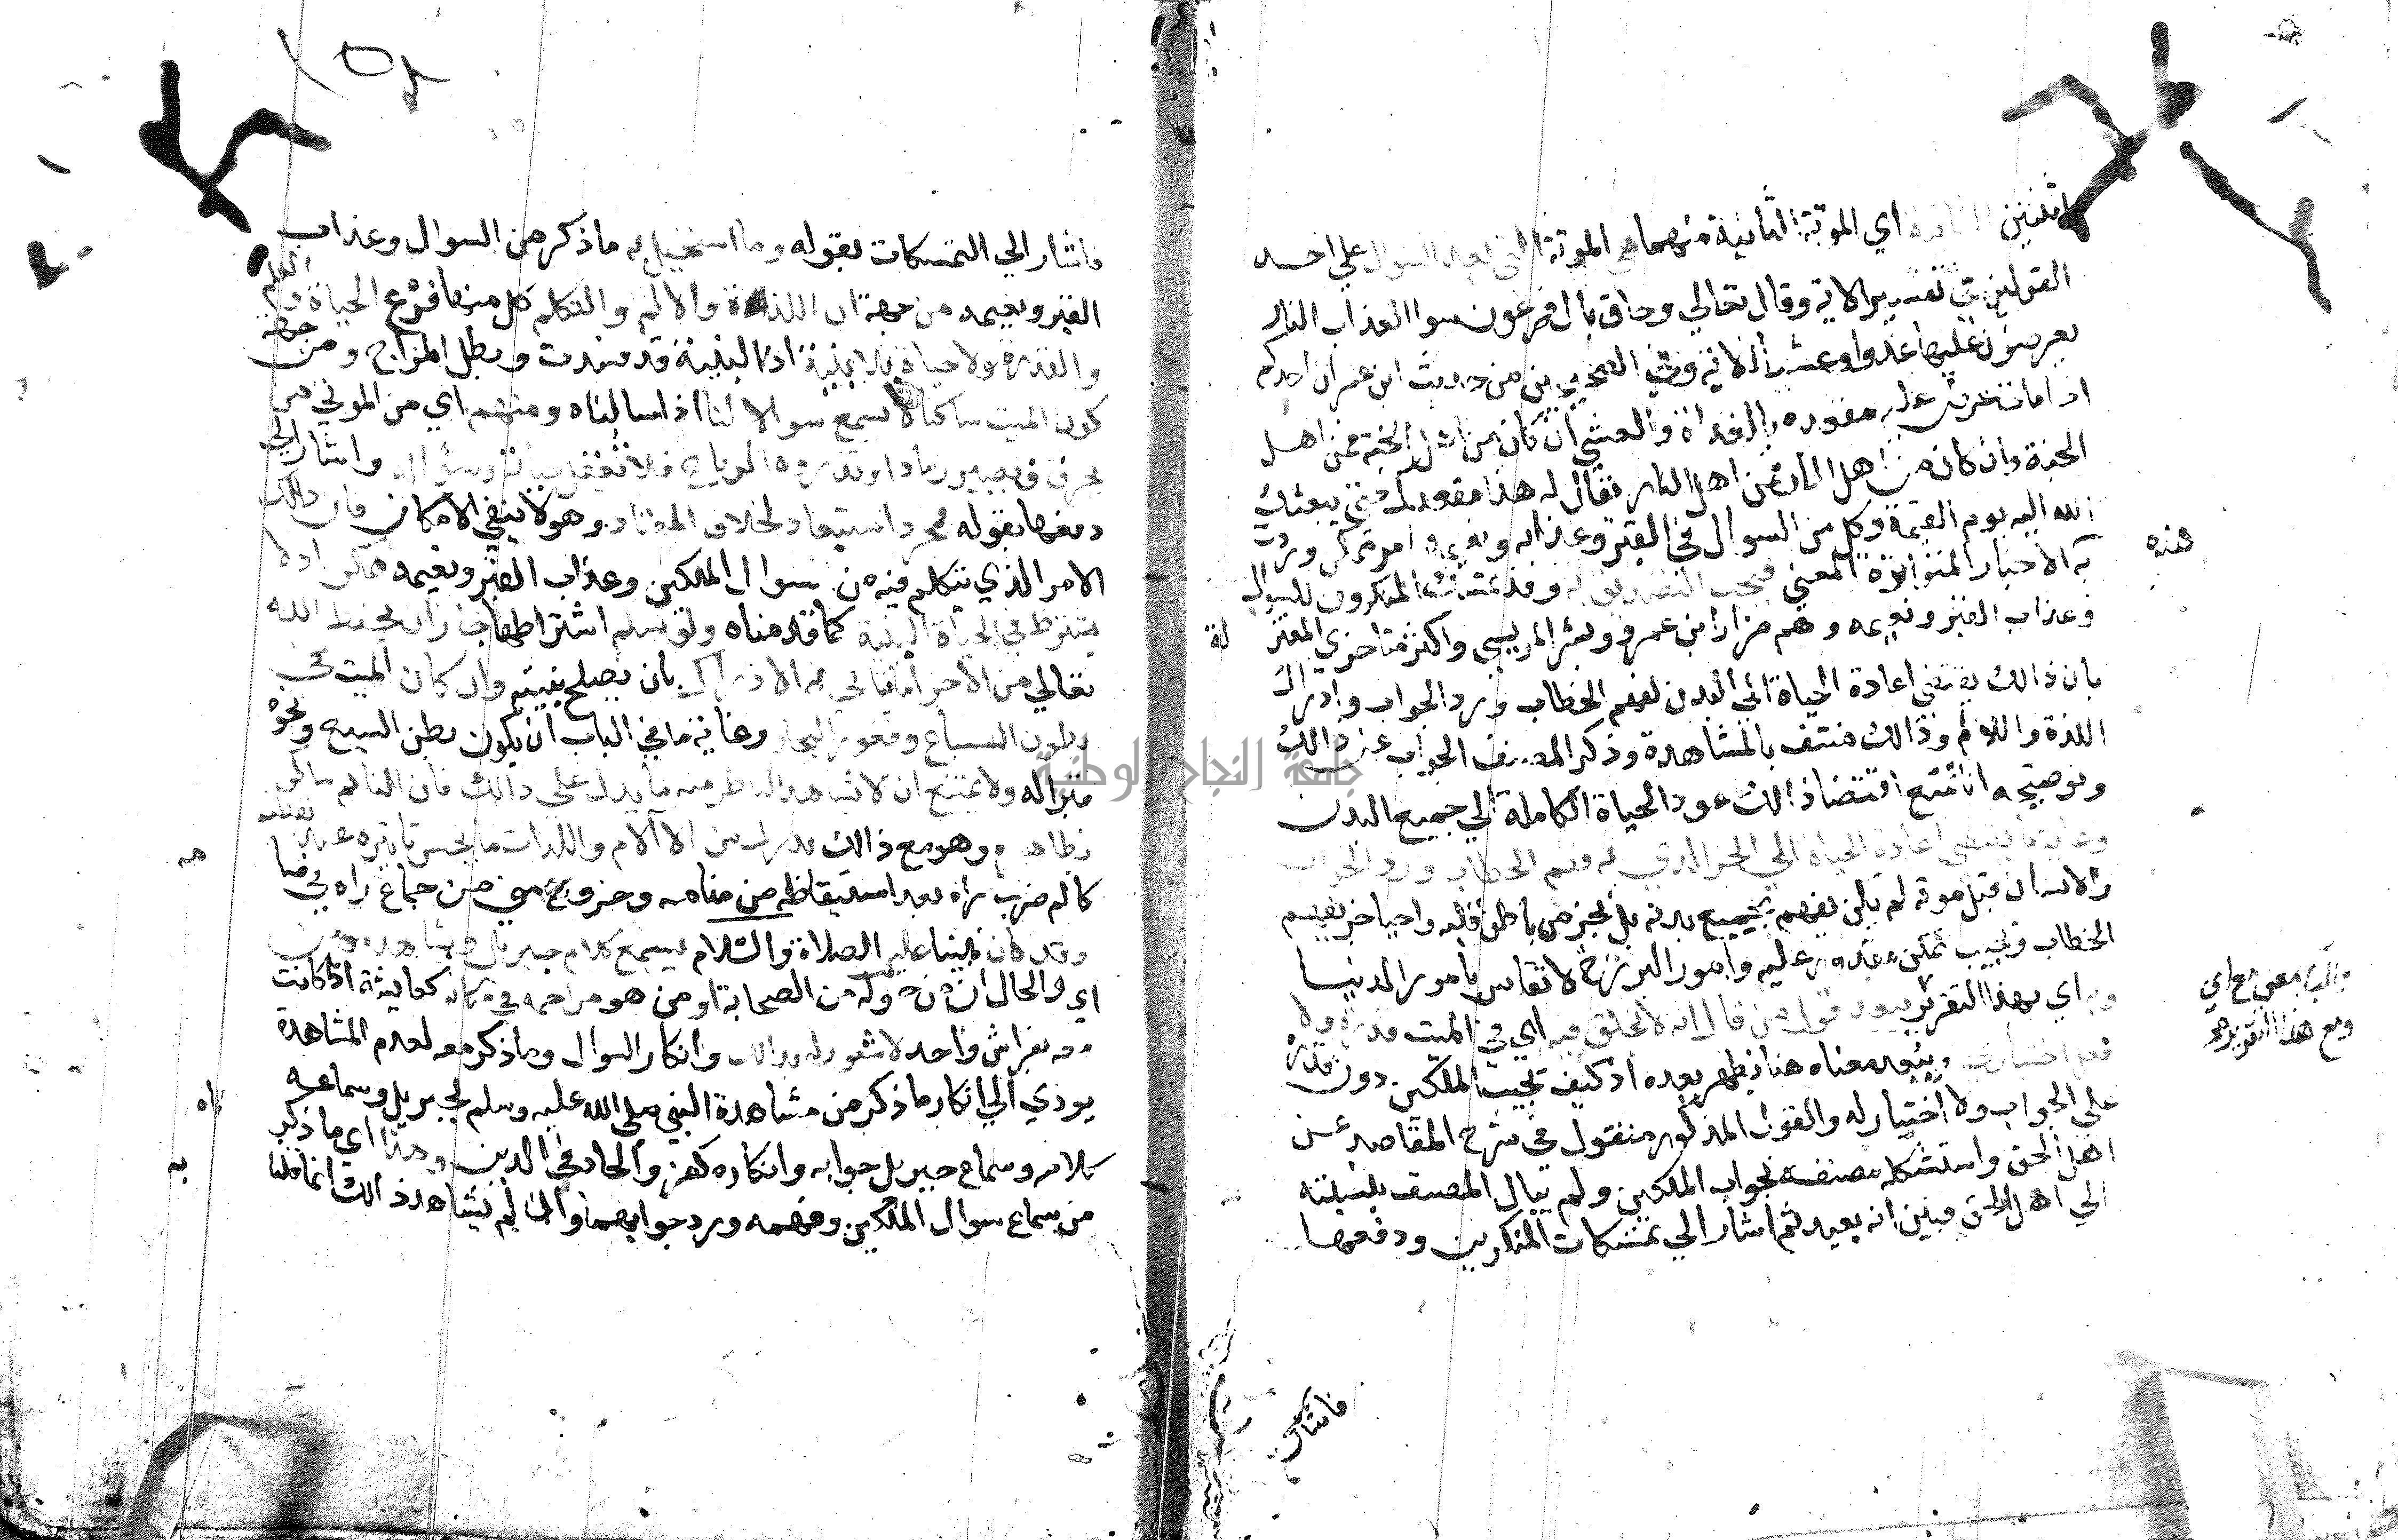 اثنتين الثانية اي الموتة الثانية منهما هي الموتة التي بعد السوال علي احد
القولين في تفسير الاية وقال تعالي وحاق بال فرعون سوا العذاب النار
يعرضون عليها غدوا وعشيا الاية وفي الصحيحين من حديث ابن عمر ان احدكم
اذا مات عرض عليه مقعده بالغداة والعشي ان كان من اهل الجنة فمن اهل
الجنة وان كان من اهل النار فمن اهل النار فقال له هذا مقعدك حتي يبعثك
الله اليه يوم القيمة وكل من السوال في القبر وعذابه ونعيمه امر ممكن وردت
هذه
به الاخبار المتواترة المعني فيجب التصديق به وقد تمسك المنكرون للسوال
وعذاب القبر ونعيمه وهم ضرار ابن عمرو وبشر المريسي واكثر متاخري المعتز
لة
بان ذالك يقتضي اعادة الحياة الي البدن لفهم الخطاب ورد الجواب وادراك
اللذة والالم وذالك منتف بالمشاهدة وذكر المصنف الجواب عن ذالك
وتوضيحه انا نمنع اقتضا ذالك عود الحياة الكاملة الي جميع البدن
وغاية ما يقتضي اعادة الحياة الي الجز الذي به فهم الخطاب ورد الجواب
والانسان قبل موته لم يكن يفهم بجميع بدنه بل بجز من باطن قلبه واحيا جز يفهم
الخطاب ويجيب ممكن مقدور عليه وامور البرزخ لا تقاس بامور الدنيا
وبه اي بهذا التقرير يبعد قول من قال انه لا يخلق فيه اي في الميت قدرة ولا
بمعني مع اي
ومع هذا التقرير
فعل اختياري ويبعد معناه هنا يظهر بعده اذ كيف يجيب الملكين دون قدرة
علي الجواب ولا اختيار له والقول المذكور منقول في شرح المقاصد عن
اهل الحق واستشكله مصنفه بجواب الملكين ولم يبال المصنف بنسبته
الي اهل الحق فبين انه بعيد ثم اشار الي تمسكات المنكرين ودفعها
فاشار
فاشار الي التمسكات بقوله وما استحيل به ما ذكر من السوال وعذاب
القبر ونعيمه من جهة ان اللذة والالم والتكلم كل منها فرع الحياة والعلم
والقدرة ولا حياة بلا بنية اذ البنية قد فسدت وبطل المزاج ومن جهة
كون الميت ساكنا لا يسمع سوالا لنا اذا سالناه ومنهم اي من الموتي من
يحرق فيصير رمادا وتذروه الرياح فلا تعقل حياته وسواله واشار الي
دفعها بقوله مجرد استبعاد لخلاف المعتاد وهو لا ينفي الامكان فان ذالك
الامر الذي نتكلم فيه من سوال الملكين وعذاب القبر ونعيمه ممكن اذ لا
يشترط في الحياة البنية كما قدمناه ولو سلم اشتراطها جاز ان يحفظ الله
تعالي من الاجزا ما يتاتي به الادراك بان يصلح بنيته وان كان الميت في
بطون السباع وقعور البحار وغاية ما في الباب ان يكون بطن السبع ونحوه
قبرا له ولا يمتنع ان لا يشاهد الناظر منه ما يدل علي ذالك فان النائم ساكن
بظاهره وهو مع ذالك يدرك من الالام واللذات ما يحس تاثيره عند يقظته
كالم ضرب راه بعد استيقاظه من منامه وخروج مني من جماع راه في منا
مه
وقد كان نبينا عليه الصلاة والسلام يسمع كلام جبريل ويشاهده
اي والحال ان من حوله من الصحابة او من هو مزاحمه في مكانه كعايشة اذ كانت
معه بفراش واحد لا شعور له بذالك وانكار السوال وما ذكر معه لعدم المشاهدة
يودي الي انكار ما ذكر من مشاهدة النبي صلي الله عليه وسلم لجبريل وسماعه
كلامه وسماع جبريل جوابه وانكاره كفر والحاد في الدين وهذا اي ما ذكر
من سماع سوال الملكين وفهمه ورد جوابهما وان لم نشاهد ذالك انما قلنا
به